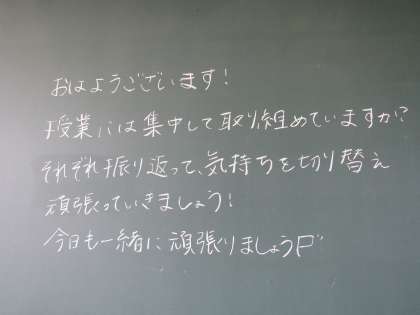 おはようございます!
授業には集中して取り組めていますか?
それぞれ振り返って、気持ちを切り替え
頑張っていきましょう!
今日も一緒に頑張りましょう